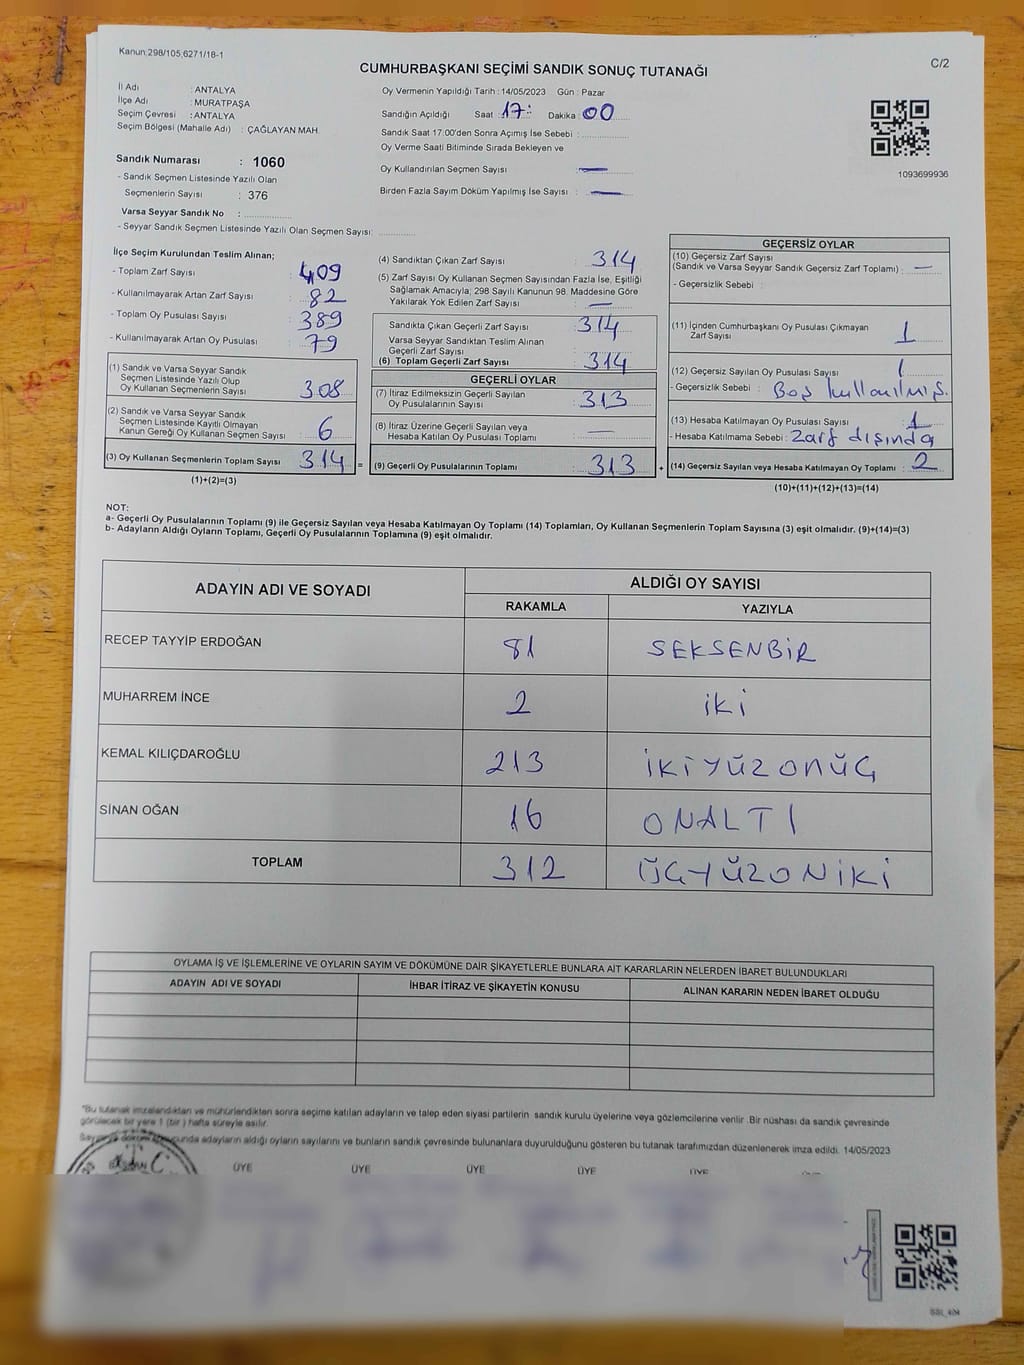 Kanun:298/105,6271/18-1
C/2
CUMHURBAŞKANI SEÇİMİ SANDIK SONUÇ TUTANAĞI
İl Adı : ANTALYA
İlçe Adı : MURATPAŞA
Seçim Çevresi : ANTALYA
Seçim Bölgesi (Mahalle Adı) : ÇAĞLAYAN MAH.
Sandık Numarası : 1060
- Sandık Seçmen Listesinde Yazılı Olan
Seçmenlerin Sayısı : 376
Varsa Seyyar Sandık No : ................
- Seyyar Sandık Seçmen Listesinde Yazılı Olan Seçmen Sayısı: ............
Oy Vermenin Yapıldığı Tarih : 14/05/2023 Gün : Pazar
Sandığın Açıldığı Saat : 17: Dakika : 00
Sandık Saat 17:00'den Sonra Açımış İse Sebebi : ................
Oy Verme Saati Bitiminde Sırada Bekleyen ve
Oy Kullandırılan Seçmen Sayısı : —
Birden Fazla Sayım Döküm Yapılmış İse Sayısı : —
1093699936
İlçe Seçim Kurulundan Teslim Alınan;
- Toplam Zarf Sayısı : 409
- Kullanılmayarak Artan Zarf Sayısı : 82
- Toplam Oy Pusulası Sayısı : 389
- Kullanılmayarak Artan Oy Pusulası : 79
(1) Sandık ve Varsa Seyyar Sandık
Seçmen Listesinde Yazılı Olup
Oy Kullanan Seçmenlerin Sayısı : 308
(2) Sandık ve Varsa Seyyar Sandık
Seçmen Listesinde Kayıtlı Olmayan
Kanun Gereği Oy Kullanan Seçmen Sayısı : 6
(3) Oy Kullanan Seçmenlerin Toplam Sayısı : 314 =
(1)+(2)=(3)
(4) Sandıktan Çıkan Zarf Sayısı : 314
(5) Zarf Sayısı Oy Kullanan Seçmen Sayısından Fazla İse, Eşitliği
Sağlamak Amacıyla, 298 Sayılı Kanunun 98. Maddesine Göre
Yakılarak Yok Edilen Zarf Sayısı : —
Sandıkta Çıkan Geçerli Zarf Sayısı : 314
Varsa Seyyar Sandıktan Teslim Alınan
Geçerli Zarf Sayısı :
(6) Toplam Geçerli Zarf Sayısı : 314
GEÇERLİ OYLAR
(7) İtiraz Edilmeksizin Geçerli Sayılan
Oy Pusulalarının Sayısı : 313
(8) İtiraz Üzerine Geçerli Sayılan veya
Hesaba Katılan Oy Pusulası Toplamı : —
(9) Geçerli Oy Pusulalarının Toplamı : 313 +
GEÇERSİZ OYLAR
(10) Geçersiz Zarf Sayısı
(Sandık ve Varsa Seyyar Sandık Geçersiz Zarf Toplamı) : —
- Geçersizlik Sebebi :
(11) İçinden Cumhurbaşkanı Oy Pusulası Çıkmayan
Zarf Sayısı : 1
(12) Geçersiz Sayılan Oy Pusulası Sayısı : 1
- Geçersizlik Sebebi : Boş kullanılmış.
(13) Hesaba Katılmayan Oy Pusulası Sayısı : 1
- Hesaba Katılmama Sebebi : Zarf dışında
(14) Geçersiz Sayılan veya Hesaba Katılmayan Oy Toplamı : 2
(10)+(11)+(12)+(13)=(14)
NOT:
a- Geçerli Oy Pusulalarının Toplamı (9) ile Geçersiz Sayılan veya Hesaba Katılmayan Oy Toplamı (14) Toplamları, Oy Kullanan Seçmenlerin Toplam Sayısına (3) eşit olmalıdır. (9)+(14)=(3)
b- Adayların Aldığı Oyların Toplamı, Geçerli Oy Pusulalarının Toplamına (9) eşit olmalıdır.
ADAYIN ADI VE SOYADI
ALDIĞI OY SAYISI
RAKAMLA YAZIYLA
RECEP TAYYİP ERDOĞAN 81 SEKSENBİR
MUHARREM İNCE 2 iki
KEMAL KILIÇDAROĞLU 213 İKİYÜZONÜÇ
SİNAN OĞAN 16 ONALTI
TOPLAM 312 ÜÇYÜZONİKİ
OYLAMA İŞ VE İŞLEMLERİNE VE OYLARIN SAYIM VE DÖKÜMÜNE DAİR ŞİKAYETLERLE BUNLARA AİT KARARLARIN NELERDEN İBARET BULUNDUKLARI
ADAYIN ADI VE SOYADI İHBAR İTİRAZ VE ŞİKAYETİN KONUSU ALINAN KARARIN NEDEN İBARET OLDUĞU
"Bu tutanak imzalandıktan ve mühürlendikten sonra seçime katılan adayların ve talep eden siyasi partilerin sandık kurulu üyelerine veya gözlemcilerine verilir .Bir nüshası da sandık çevresinde
görülecek bir yere 1 (bir ) hafta süreyle asılır.
sonucunda adayların aldığı oyların sayılarını ve bunların sandık çevresinde bulunanlara duyurulduğunu gösteren bu tutanak tarafımızdan düzenlenerek imza edildi. 14/05/2023
BAŞKAN ÜYE ÜYE ÜYE ÜYE ÜYE